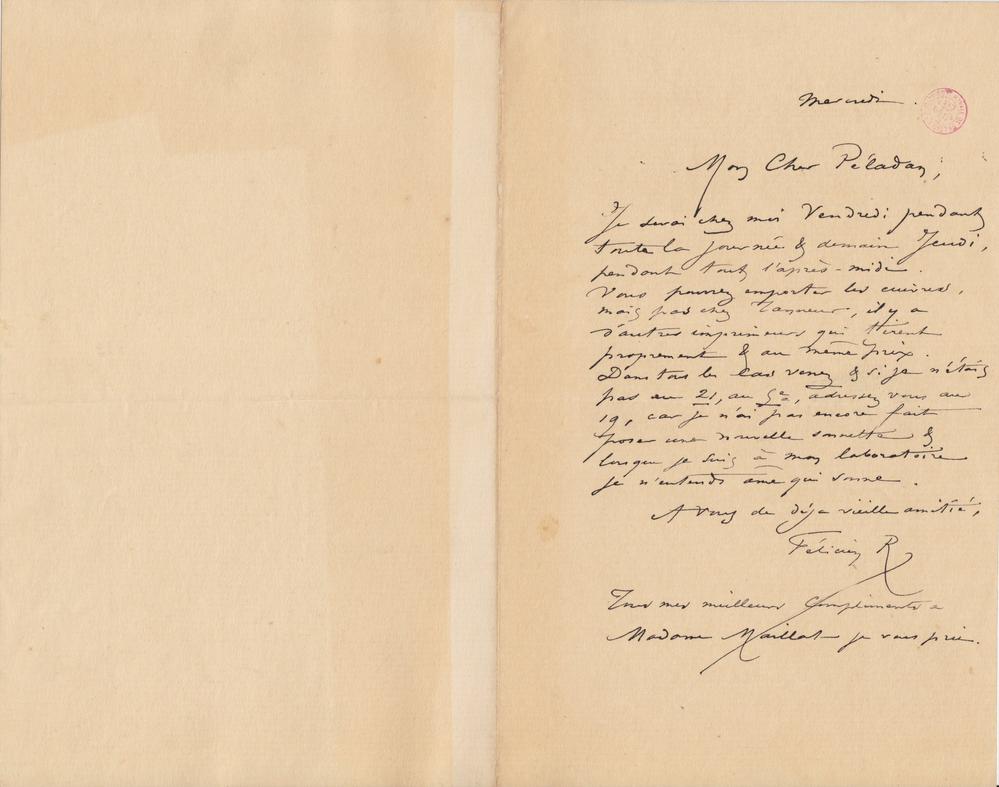 Mercredi.
Mon Cher Péladan,
Je serai chez moi Vendredi pendant
toute la journée & demain Jeudi,
pendant tout l'après-midi.
Vous pourrez emporter les cuivres,
mais pas chez Tanneur, il y a
d'autres imprimeurs qui tirent
proprement & au même prix.
Dans tous les cas venez & si je n'étais
pas au 21, au 5e, adressez vous au
19, car je n'ai pas encore fait
poser une nouvelle sonnette &
lorsque je suis à mon laboratoire
je n'entends âme qui sonne.
A vous de déja vieille amitié,
Félicien R
Tous mes meilleurs compliments a
Madame Maillat je vous prie.